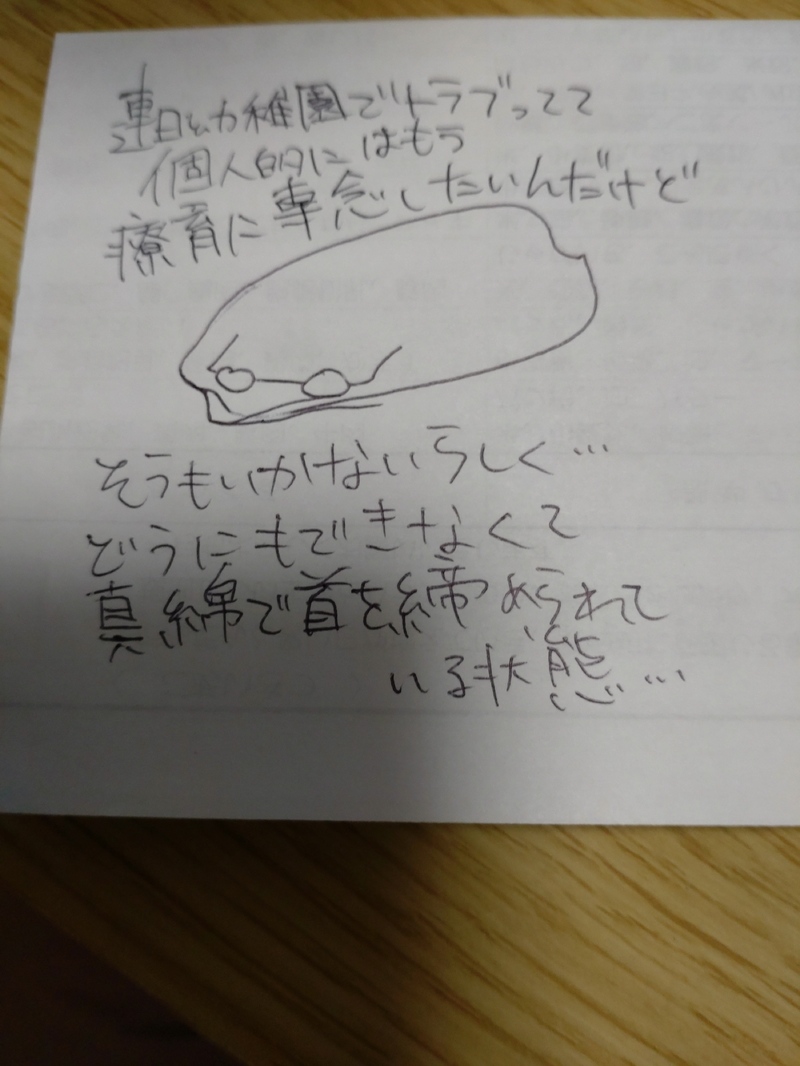 連日幼稚園でトラブってて
個人的にはもう
療育に専念したいんだけど
そうもいかないらしく…
どうにもできなくて
真綿で首を締められて
いる状態…